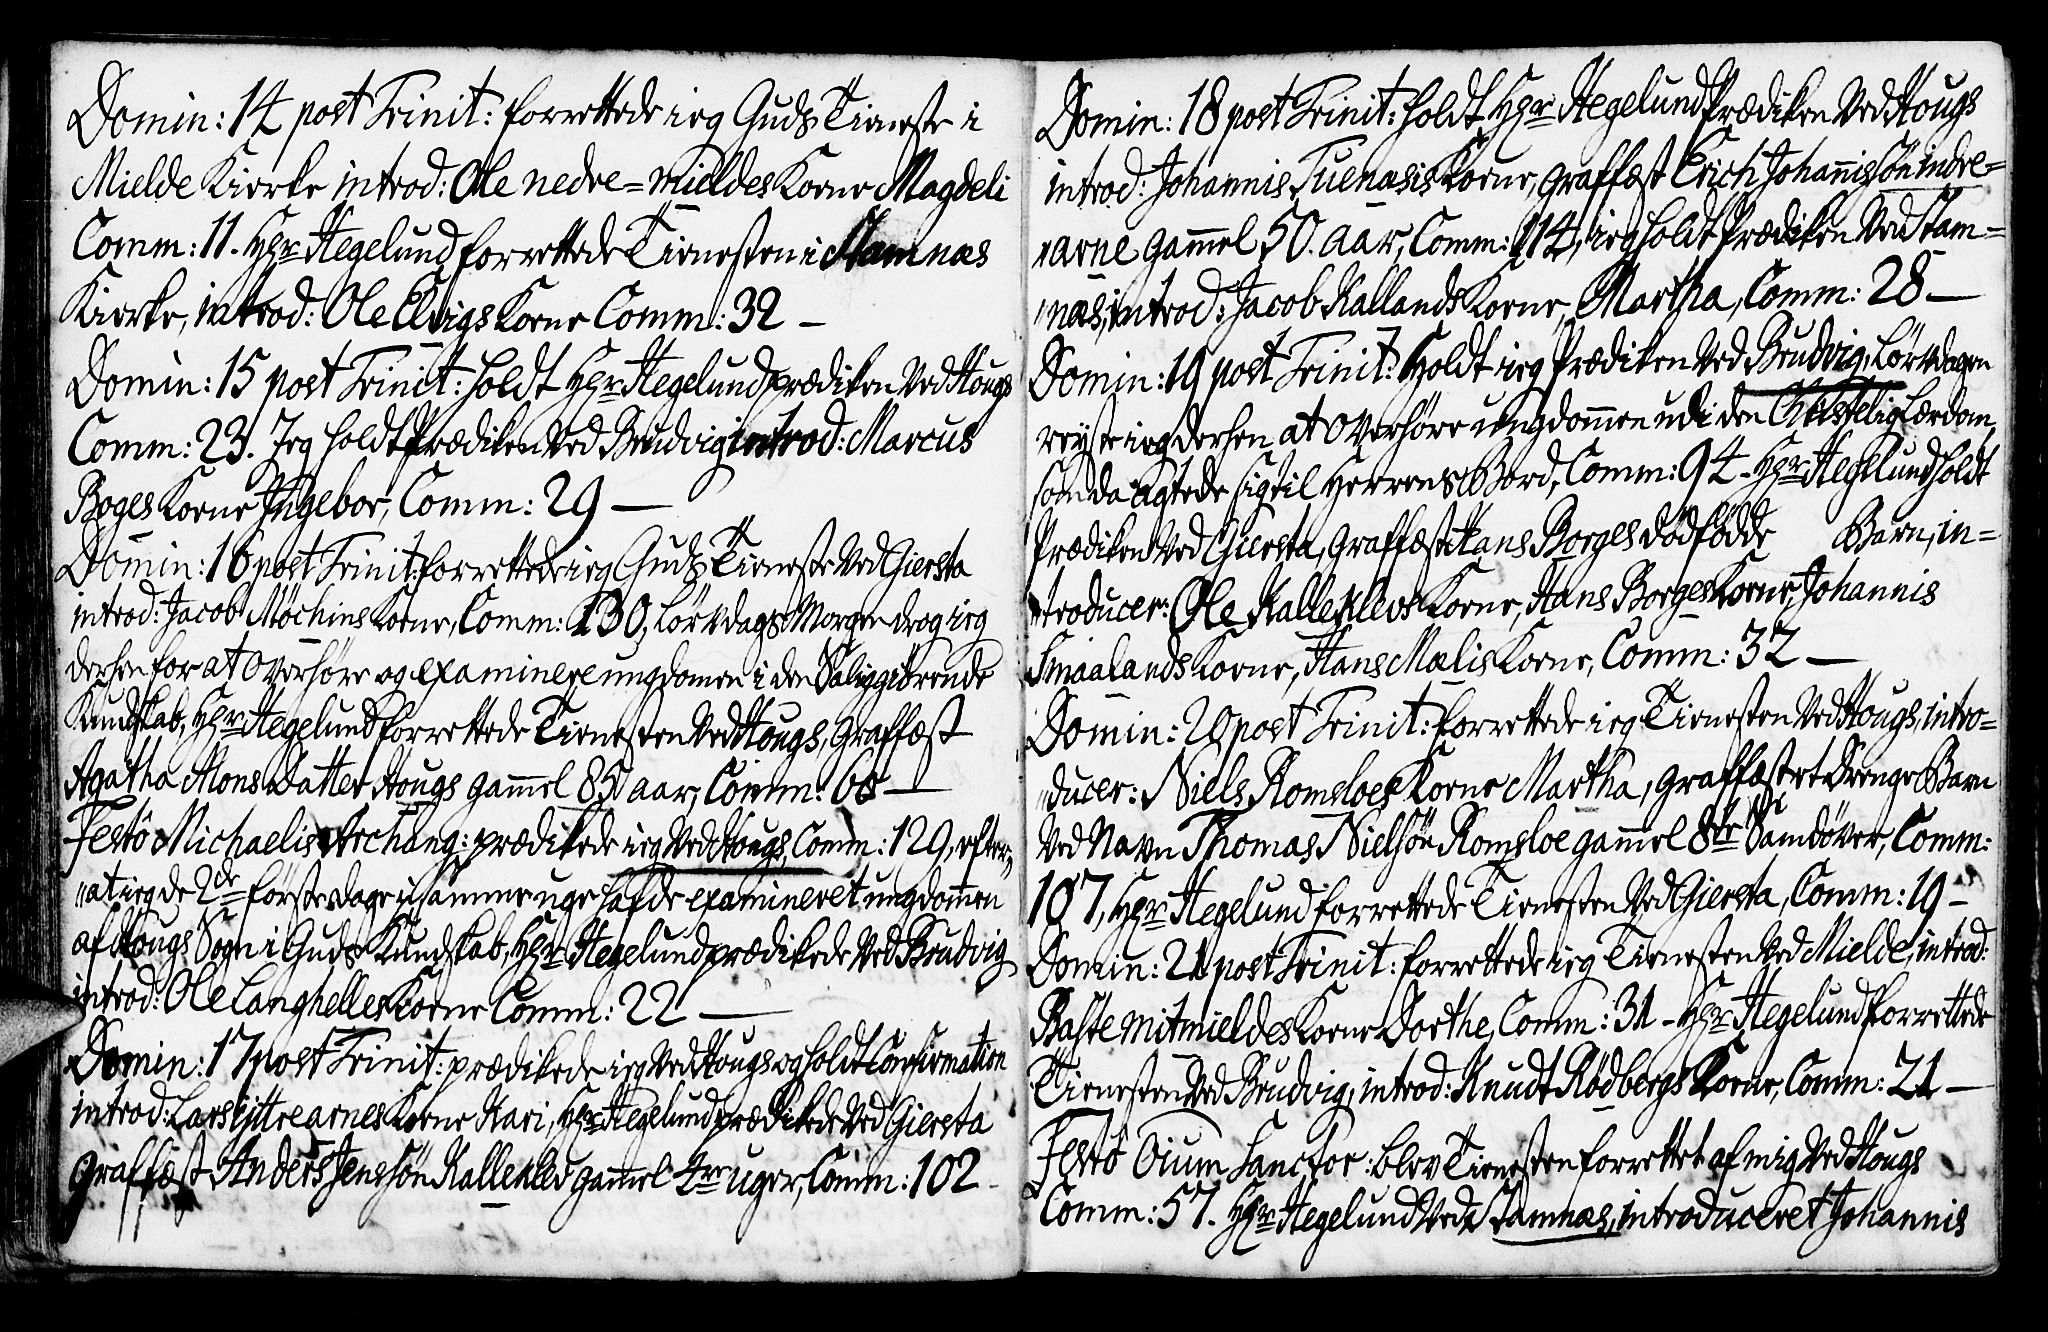 Domin: 14 post Trinit: forrettede ieg Guds Tieneste i
Mielde Kierke introd: Ole nedre=mieldes Kone Magdeli
Comm: 11. Hr Hegelund forrettede Tienesten i Stamnæs
Kierke, introd: Ole Elvigs Kone Comm: 32 —
Domin: 15 post Trinit: holdt Hr Hegelund prædiken Ved Hougs
Comm: 23. Jeg holdt Prædiken Ved Brudvig introd: Marcus
Boges Kone Jngebor, Comm: 29 —
Domin: 16 post Trinit: forrettede ieg Guds Tieneste Ved Giersta
introd: Jacob Möchins Kone, Comm: 130, Lövedags Morgen drog ieg
derhen for at overhöre og examinere ungdomen i den Saliggiörende
Kundskab, Hr Hegelund forrettede Tienesten Ved Hougs, Graffæst
Agatha Mons datter Hougs gammel 85 aar, Comm: 60 —
Festo Michaelis Archang: prædikede ieg Ved Hougs, Comm: 129, efter
at ieg de 2de förste dage i samme uge hafde examineret ungdommen
af Hougs Sogn i Guds Kundskab, Hr Hegelund prædikede Ved Brudvig
introd: Ole Langhelles Kone Comm: 22 —
Domin: 17 post Trinit: prædikede ieg Ved Hougs og holdt Confirmation
introd: Lars yttrearnes Kone Kari, Hr Hegelund prædikede Ved Giersta
Graffæst Anders Jensön Kalleklev gammel 4re uger, Comm: 102 —
Domin: 18 post Trinit: holdt Hr Hegelund Prædiken Ved Hougs
introd: Johannis Tuenæsis Kone, graffæst Erich Johannissön indre=
arne gammel 50. aar, Comm: 114, ieg holdt Prædiken Ved Stam=
næs, introd: Jacob Kallands Kone, Martha, Comm: 28 —
Domin: 19 post Trinit: Holdt ieg Prædiken Ved Brudvig, Löverdagen
reyste ieg derhen at overhöre ungdommen udi den Christelig Lærdom,
som da agtede sig til Herrens Bord, Comm: 94 — Hr Hegelund holdt
Prædiken Ved Giersta, graffæst Hans Borges dödfödde Barn, in=
troducer: Ole Kalleklevs Kone, Hans Borges Kone, Johannis
Smaalands Kone, Hans Mælis Kone, Comm: 32 —
Domin: 20 post Trinit: forrettede ieg Tienesten Ved Hougs, intro=
ducer: Niels Romsloes Kone Martha, graffæst et drenge Barn
Ved Navn Thomas Nielsön Romsloe gammel 8te Samdöver, Comm:
107, Hr Hegelund forrettede Tienesten Ved Giersta, Comm: 19 —
Domin: 21 post Trinit: forrettede ieg Tienesten Ved Mielde, introd:
Baste mitmieldes Kone Dorthe, Comm: 31 — Hr Hegelund forrettede
Tienesten Ved Brudvig, introd: Knudt Rödbergs Kone, Comm: 21 —
Festo Oium Sanctor: blev Tienesten forrettet af mig Ved Hougs
Comm: 57. Hr Hegelund Ved Stamnæs, introduceret Johannis